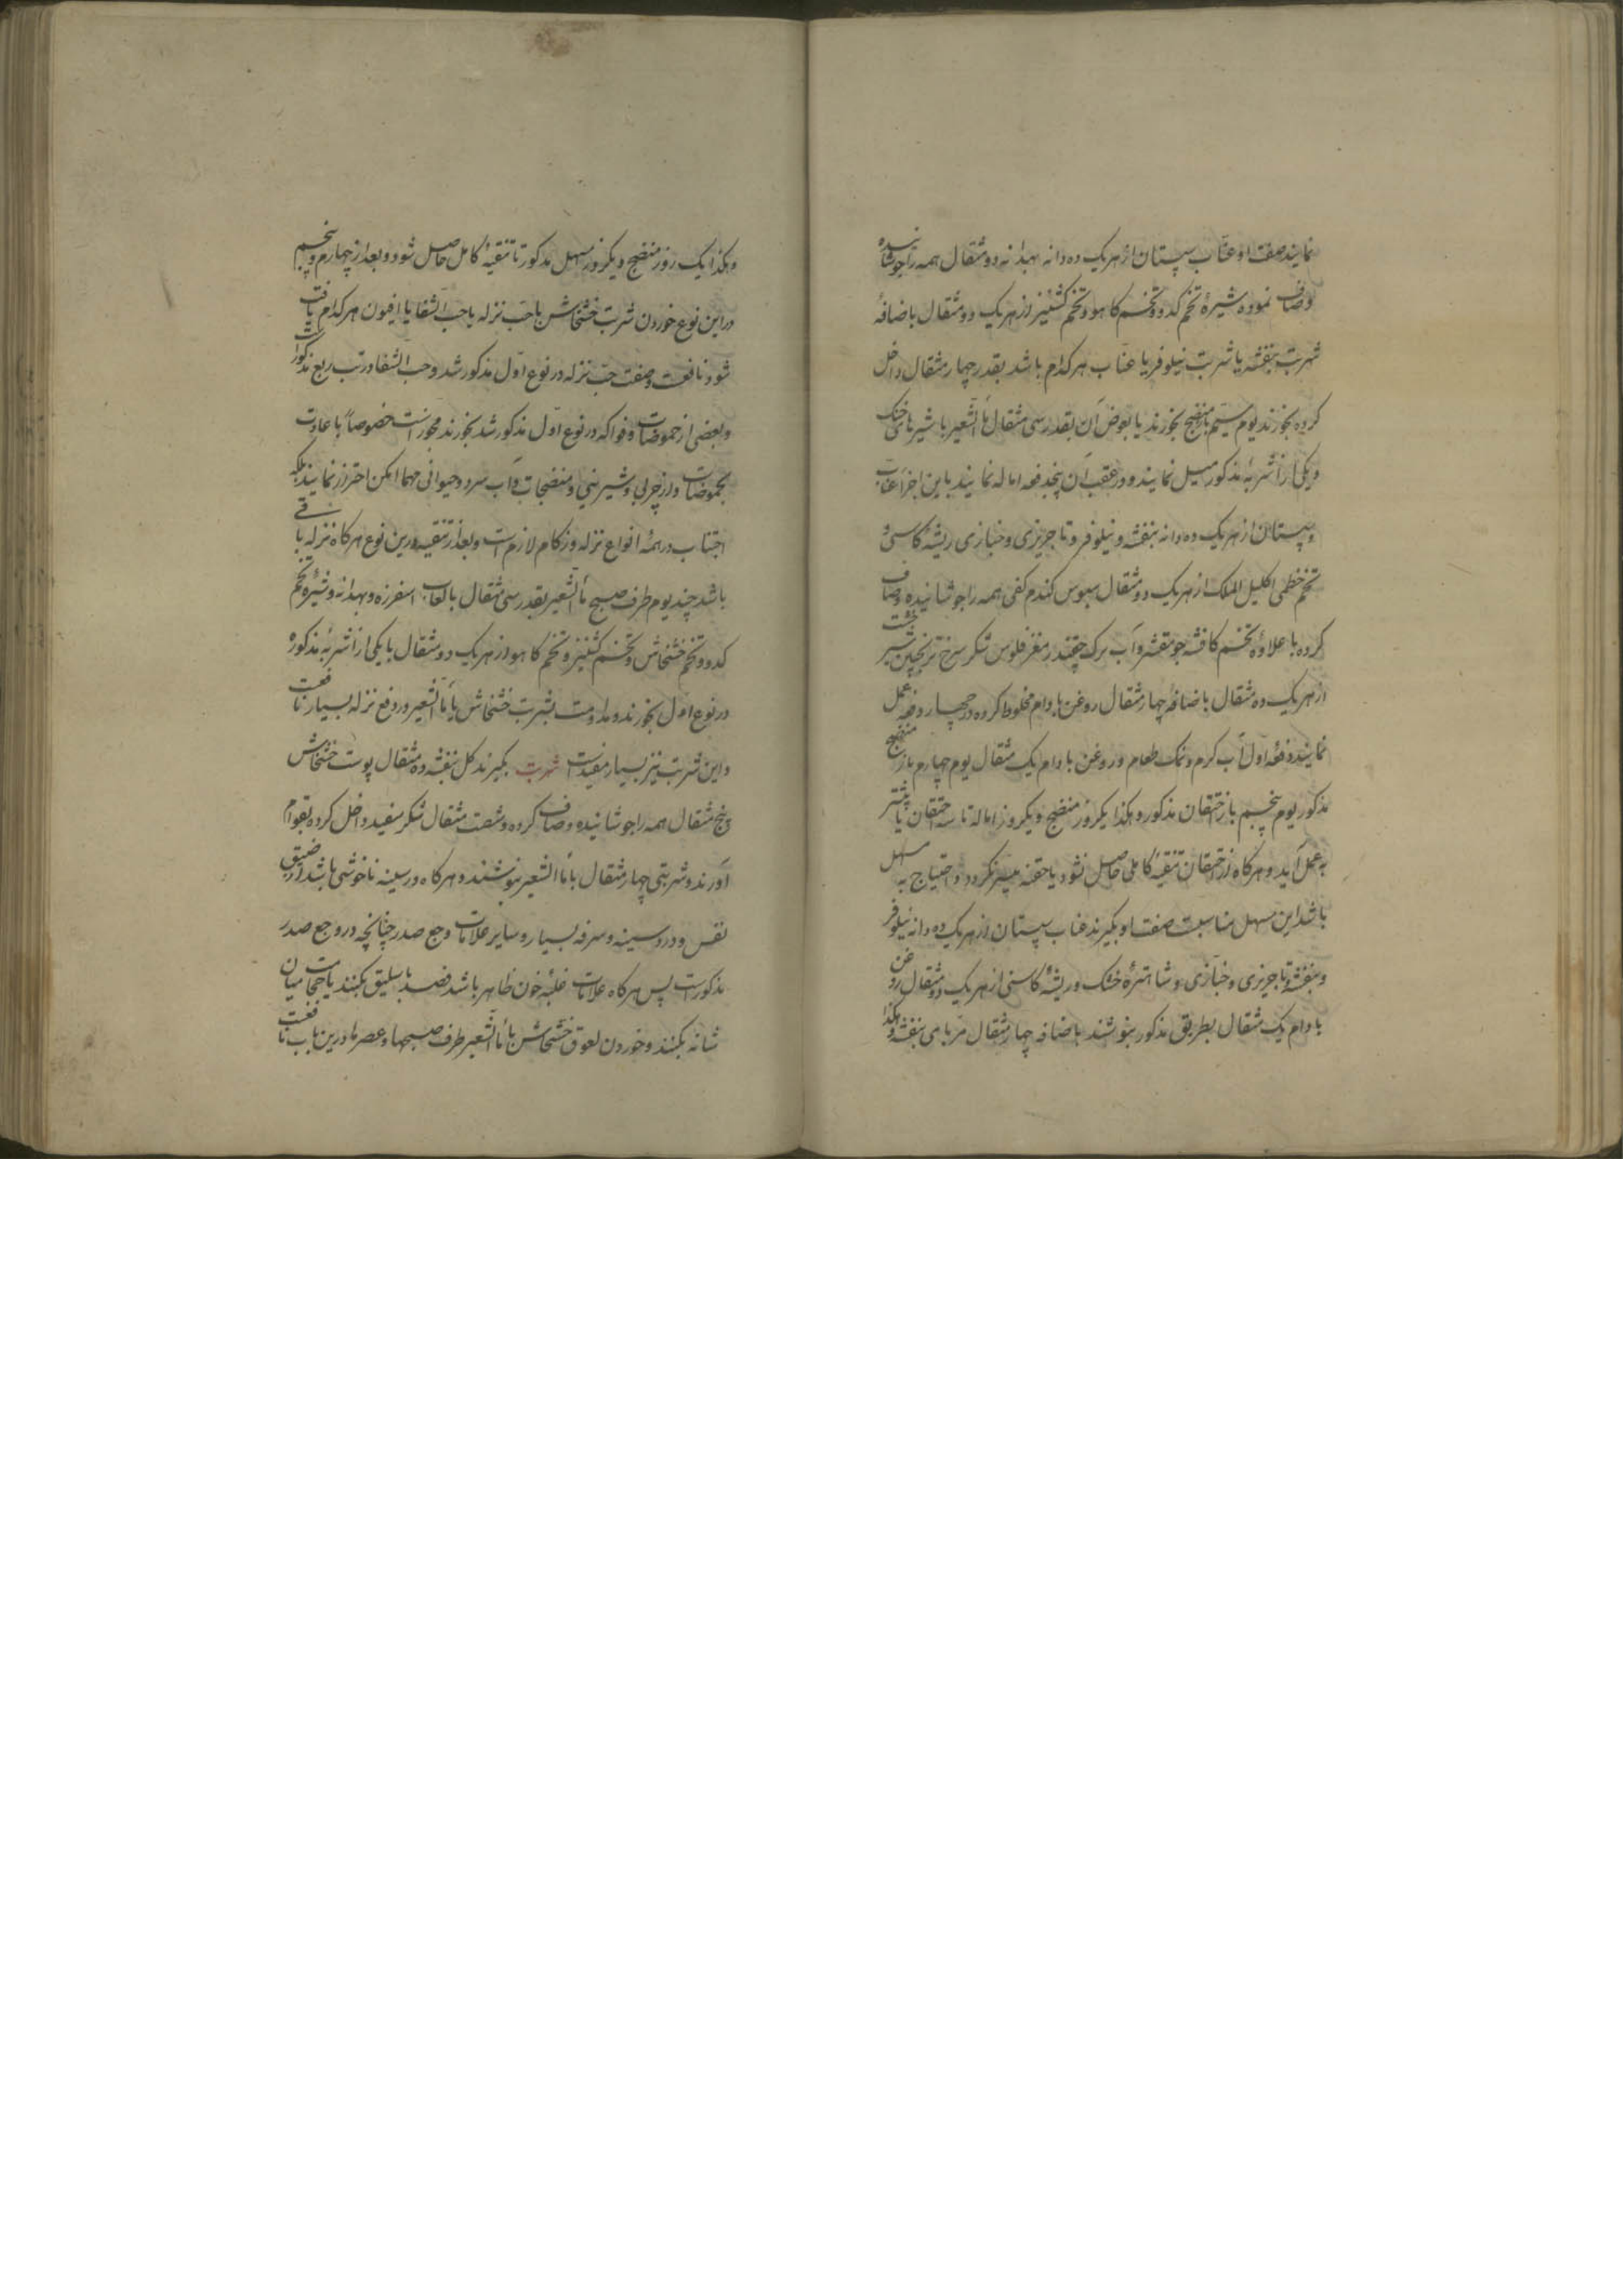 نمایند صفت او عناب سپستان از هر یک ده دانه بهدانه دو مثقال همه را جوشانیده
و صاف نموده شیرهٔ تخم کدو و تخم کاهو و تخم کشنیز از هر یک دو مثقال باضافهٔ
شربت بنفشه یا شربت نیلوفر یا عناب هر کدام باشد بقدر چهار مثقال داخل
کرده بخورند یوم سیم باز منضج بخورند یا بعوض آن بقدر سی مثقال ماءالشعیر با شیرهای خنک
و یکی از اشربهٔ مذکور میل نمایند و در عقب آن پنجدفعه اماله نمایند باین اجزا عناب
و سپستان از هر یک ده دانه بنفشه و نیلوفر و تاجریزی و خبازی ریشهٔ کاسنی و
تخم خطمی اکلیل الملک از هر یک دو مثقال سبوس کندم کفی همه را جوشانیده و صاف
کرده با علاوهٔ تخم کافشه جو مقشر و آب برک چقندر مغز فلوس شکر سرخ ترنجبین شیرخشت
از هر یک ده مثقال باضافهٔ چهار مثقال روغن بادام مخلوط کرده در چهار دفعه عمل
نمایند دفعهٔ اول آب کرم و نمک طعام و روغن بادام یک مثقال یوم چهارم باز منضج
مذکور یوم پنجم باز احتقان مذکور و هکذا یکروز منضج و یکروز اماله تا سه احتقان یا بیشتر
به عمل آید و هر کاه از احتقان تنقیهٔ کاملی حاصل نشود یا حقنه میسر نکردد و احتیاج به مسهل
باشد این مسهل مناسبست صفت او بکیرند عناب سپستان از هر یک ده دانه نیلوفر
و بنفشه و تاجریزی و خبازی و شاهترهٔ خشک و ریشهٔ کاسنی از هر یک دو مثقال روغن
بادام یک مثقال بطریق مذکور بنوشند باضافه چهار مثقال مربای بنفشه و هکذا
و هکذا یک روز منضج و یکروز مسهل مذکور تا تنقیهٔ کامل حاصل شود و بعد از چهارم و پنجم
در این نوع خوردن شربت خشخاش با حب نزله یا حب الشفا یا افیون هر کدام یافت
شود نافعست و صفت حب نزله در نوع اول مذکور شد و حب الشفا در تب ربع مذکور است
و بعضی از حموضات و فواکه در نوع اول مذکور شد بخورند مجوز است خصوصاً با عادت
بحموضات و از چربی و شیرینی و منضجات و آب سرد و حیوانی مهما امکن احتراز نمایند بلکه
اجتناب در همهٔ انواع نزله و زکام لازم است و بعد از تنقیه در این نوع هر کاه نزله باقی
باشد چند یوم طرف صبح ماءالشعیر بقدر سی مثقال با لعاب اسفرزه و بهدانه و شیرهٔ تخم
کدو و تخم خشخاش و تخم کشنیز و تخم کاهو از هر یک دو مثقال با یکی از اشربهٔ مذکوره
در نوع اول بخورند و مداومت بشربت خشخاش با ماءالشعیر در دفع نزله بسیار نافعست
و این شربت نیز بسیار مفیدست شربت بکیرند کل بنفشه ده مثقال پوست خشخاش
پنج مثقال همه را جوشانیده و صاف کرده و شصت مثقال شکر سفید داخل کرده بقوام
آورند و شربتی چهار مثقال با ماءالشعیر بنوشند و هر کاه در سینه ناخوشی باشد از ضیق
نفس و درد سینه و سرفه بسیار و سایر علامات وجع صدر چنانچه در وجع صدر
مذکور است پس هر کاه علامات غلبهٔ خون ظاهر باشد فصد باسلیق بکنند یا حجامت میان
شانه بکنند و خوردن لعوق خشخاش با ماءالشعیر طرف صبحها و عصرها درین باب نافعست